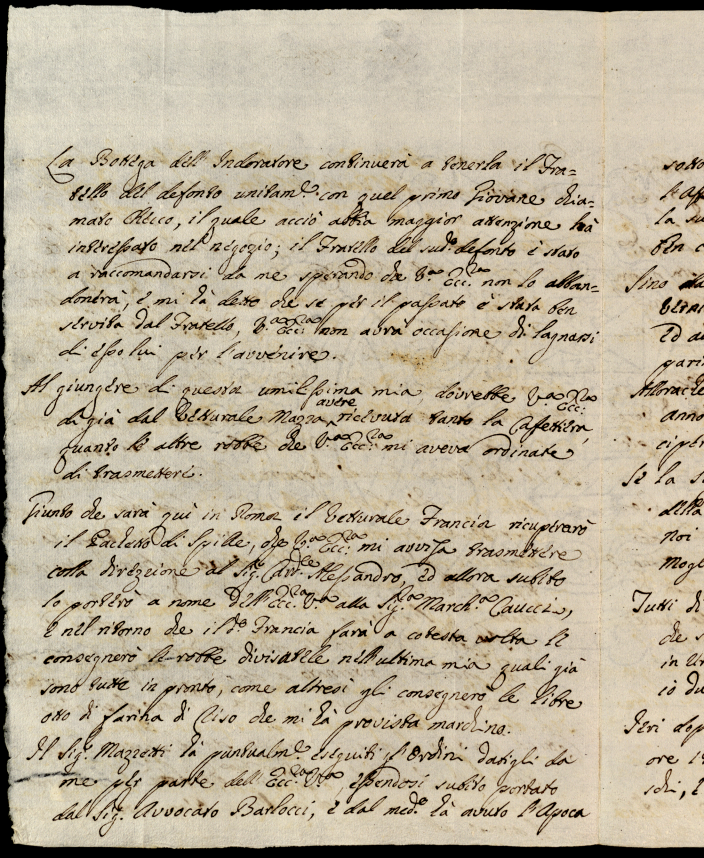 La Bottega dell' Indoratore continuerà a tenerla il Fra=
tello del defonto unitam.e con quel primo Giovane chia=
mato Checco, il quale acciò abbia maggior attenzione hà
interessato nel negozio; il Fratello del sud.o defonto è stato
a raccomandarsi da me sperando che V.ra Ecc.za non lo abban=
donerà, e mi hà detto che se per il passato è stata ben
servita dal Fratello, V.ra Ecc.za non avrà occasione di lagnarsi
di esso lui per l'avvenire.
Al giungere di questa umilissima mia, dovrebbe V.ra Ecc.za
di già dal Vetturale Mazza avere ricevuta tanto la Caffettiera,
quanto le altre robbe che V.ra Ecc.za mi aveva ordinate
di trasmetterci.
Giunto che sarà qui in Roma il Vetturale Francia ricuperarò
il Pachetto di Spille, che V.ra Ecc.za mi avvisa trasmettere
colla direzione al Sig.r Alessandro, ed allora subito
lo porterò a nome dell'Ecc.za V.ra alla Sig.ra March.a
e nel ritorno che il d.o Francia farà a cotesta volta le
consegnerò le robbe divisatele nell'ultima mia quali già
sono tutte in pronto, come altresì gli consegnerò le libre
otto di farina di Riso che mi hà provista marchino.
Il Sig.r Mazzetti hà puntualm.e eseguiti gl'Ordini datigli da
me per parte dell'Ecc.za V.ra, essendosi subito portato
dal Sig.r Avvocato Barlocci, e dal med.o hà avuto l'Apoca
sotto
la su
ben c
sino da
ed a
parin
anno
ciper
Se la s
della
noi
mogl
Tutti di
che s
in
io du
Ieri dop
ore 1